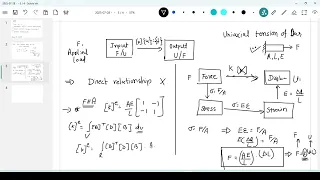 F,
Applied
Load
Input
F/u
Output
U/F
Uniaxial Tension of Bar
F
A, L, E
⇒ Direct relationship X
FEA
[k]^e = AE/L [1 -1; -1 1]
[k]^e = ∫_V [B]^T [D] [B] dv
[k]^e = ∫ [B]^T [D] [B] .
F
Force
k
Displ
U
E = ΔL/L
σ = F/A
Stress
σ = Eε
Strain
σ = F/A
⇒ Eε = F/A
E(ΔL/L) = F/A
F = (AE/L) · (ΔL)
F
U